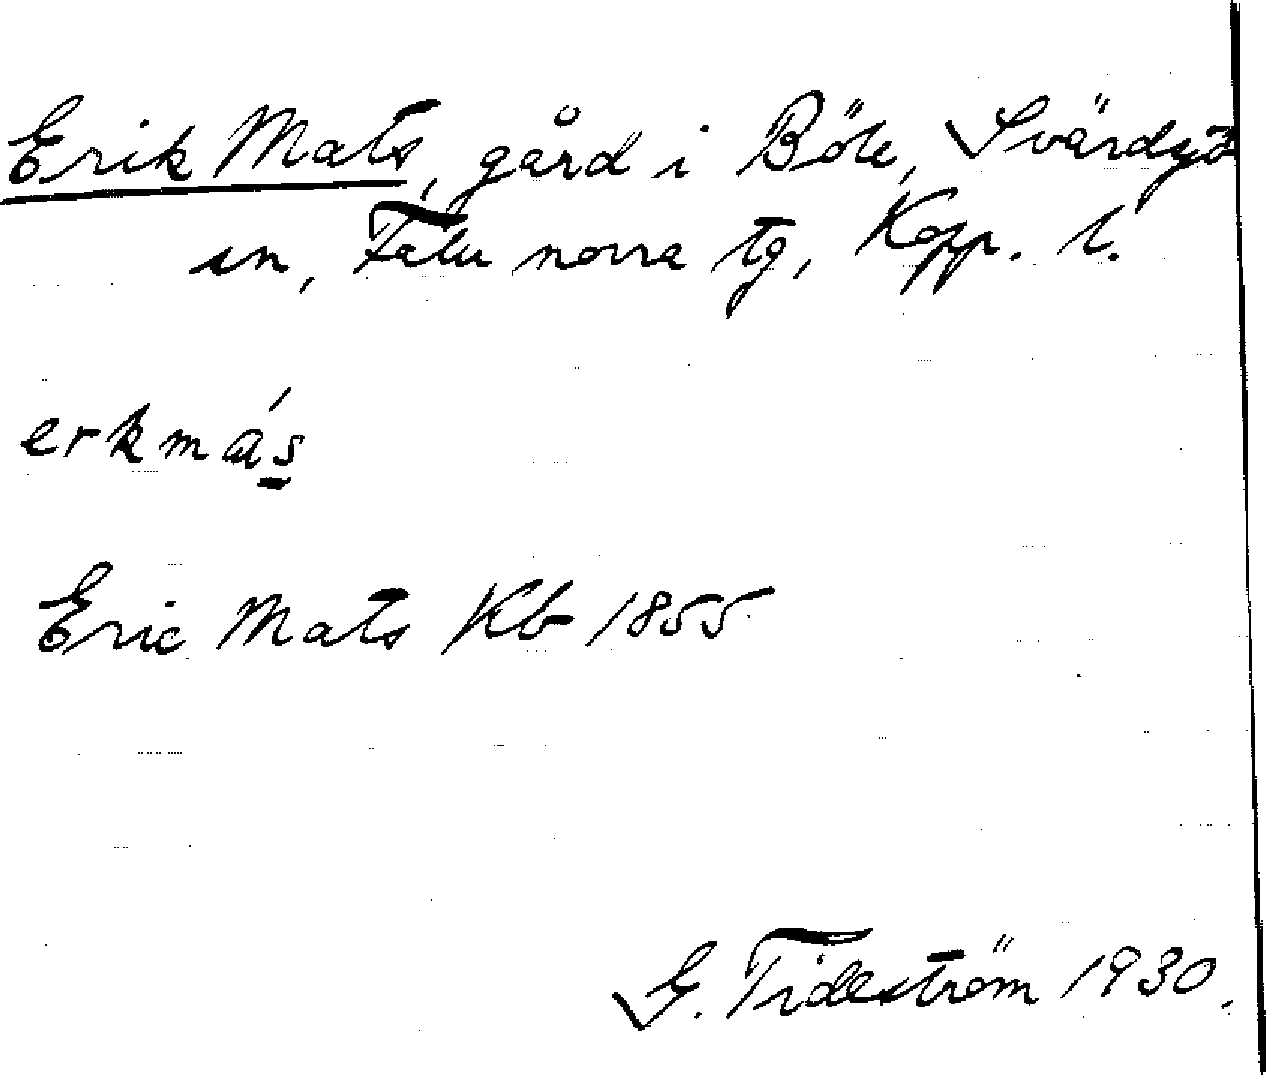 Erik Mats, gård i Böle, Svärdsjö
sn, Falu norra tg, Kopp. l.
erkmás
Eric Mats Kb 1855
G. Tideström 1930.